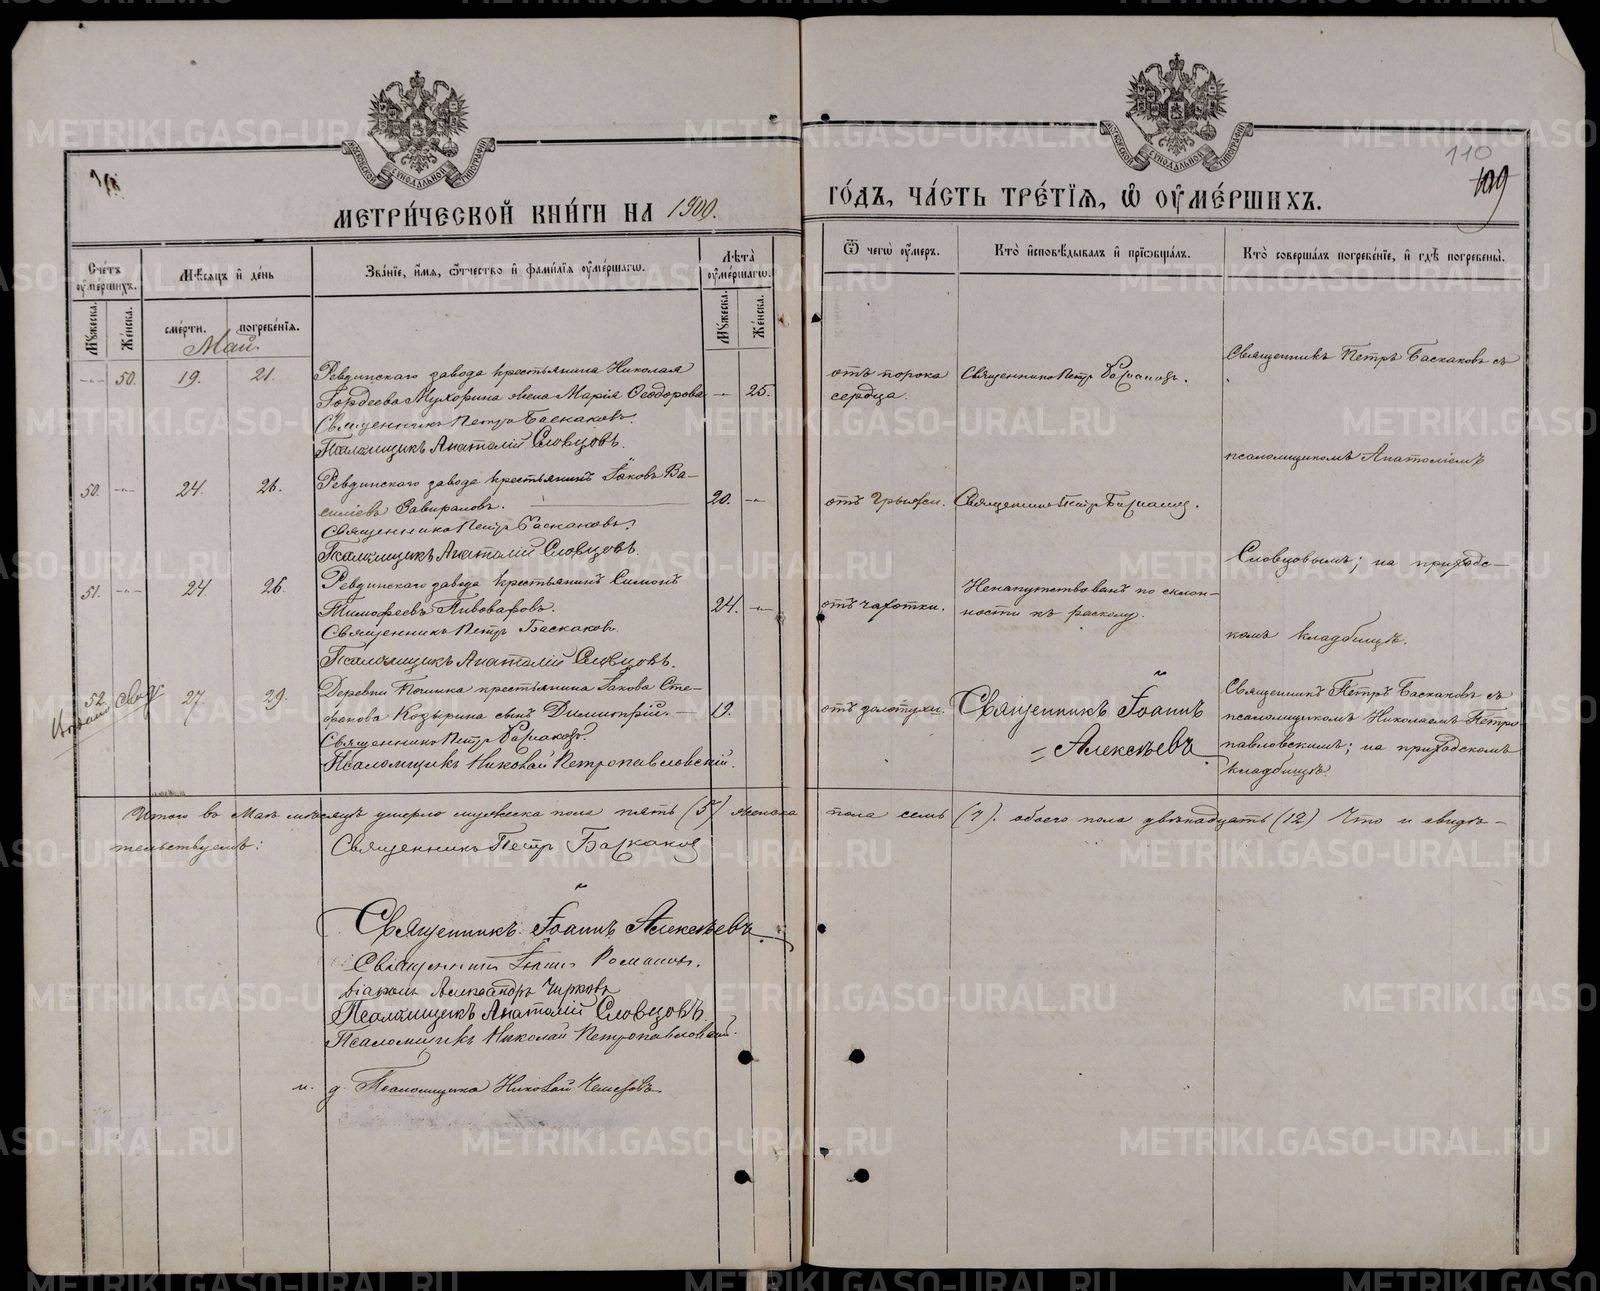 МЕТРИ́ЧЕСКОЙ КНИ́ГИ НА 1900.
ГО́ДЪ, ЧА́СТЬ ТРЕ́ТІЯ, Ѿ ОУМЕ́РШИХЪ.
110
109
Сче́тъ оуме́ршихъ.
Мѣ́сяцъ и де́нь
Зва́ніе, и́мя, о́тчество и фами́лія оуме́ршагѡ.
Лѣта̀ оуме́ршагѡ.
Ѿ чегѡ̀ оу́меръ.
Кто̀ исповѣ́дывалъ и пріѡбща́лъ.
Кто̀ соверша́лъ погребе́ніе, и гдѣ̀ погребены̀.
Му́жеска.
Же́нска.
сме́рти.
погребе́нія.
Му́жеска.
Же́нска.
Май.
50. 19. 21. Ревдинскаго завода крестьянина Николая
Гордеева Мухорина жена Марія Ѳеодорова 25.
Священникъ Петръ Баскаковъ.
Псаломщикъ Анатолій Словцовъ.
отъ порока
сердца.
Священникъ Петръ Баскаковъ.
Священникъ Петръ Баскаковъ съ
псаломщикомъ Анатоліемъ
50. 24. 26. Ревдинскаго завода крестьянинъ Іаковъ Ва-
силіевъ Завираловъ. 20.
Священникъ Петръ Баскаковъ.
Псаломщикъ Анатолій Словцовъ.
отъ грыжи.
Священникъ Петръ Баскаковъ.
Словцовымъ; на приходс-
51. 24. 26. Ревдинскаго завода крестьянинъ Симонъ
Тимофеевъ Пивоваровъ. 24.
Священникъ Петръ Баскаковъ.
Псаломщикъ Анатолій Словцовъ.
отъ чахотки.
Ненапутствованъ по склон-
ности къ расколу.
комъ кладбищѣ.
52. 27. 29. Деревни Починка крестьянина Іакова Сте-
фанова Козырина сынъ Димитрій. 19.
Священникъ Петръ Баскаковъ.
Псаломщикъ Николай Петропавловскій.
отъ золотухи.
Священникъ Іоаннъ
Алексѣевъ
Священникъ Петръ Баскаковъ съ
псаломщикомъ Николаемъ Петро
павловскимъ; на приходскомъ
кладбищѣ.
Итого въ Маѣ мѣсяцѣ умерло мужеска пола пять (5) женска пола семь (7). обоего пола двѣнадцать (12) Что и свидѣ-
тельствуемъ:
Священникъ Петръ Баскаковъ
Священникъ Іоаннъ Алексѣевъ
Священникъ Романовъ.
Діаконъ Александръ Чирковъ
Псаломщикъ Анатолій Словцовъ.
Псаломщикъ Николай Петропавловскій.
и. д. Псаломщика Николай